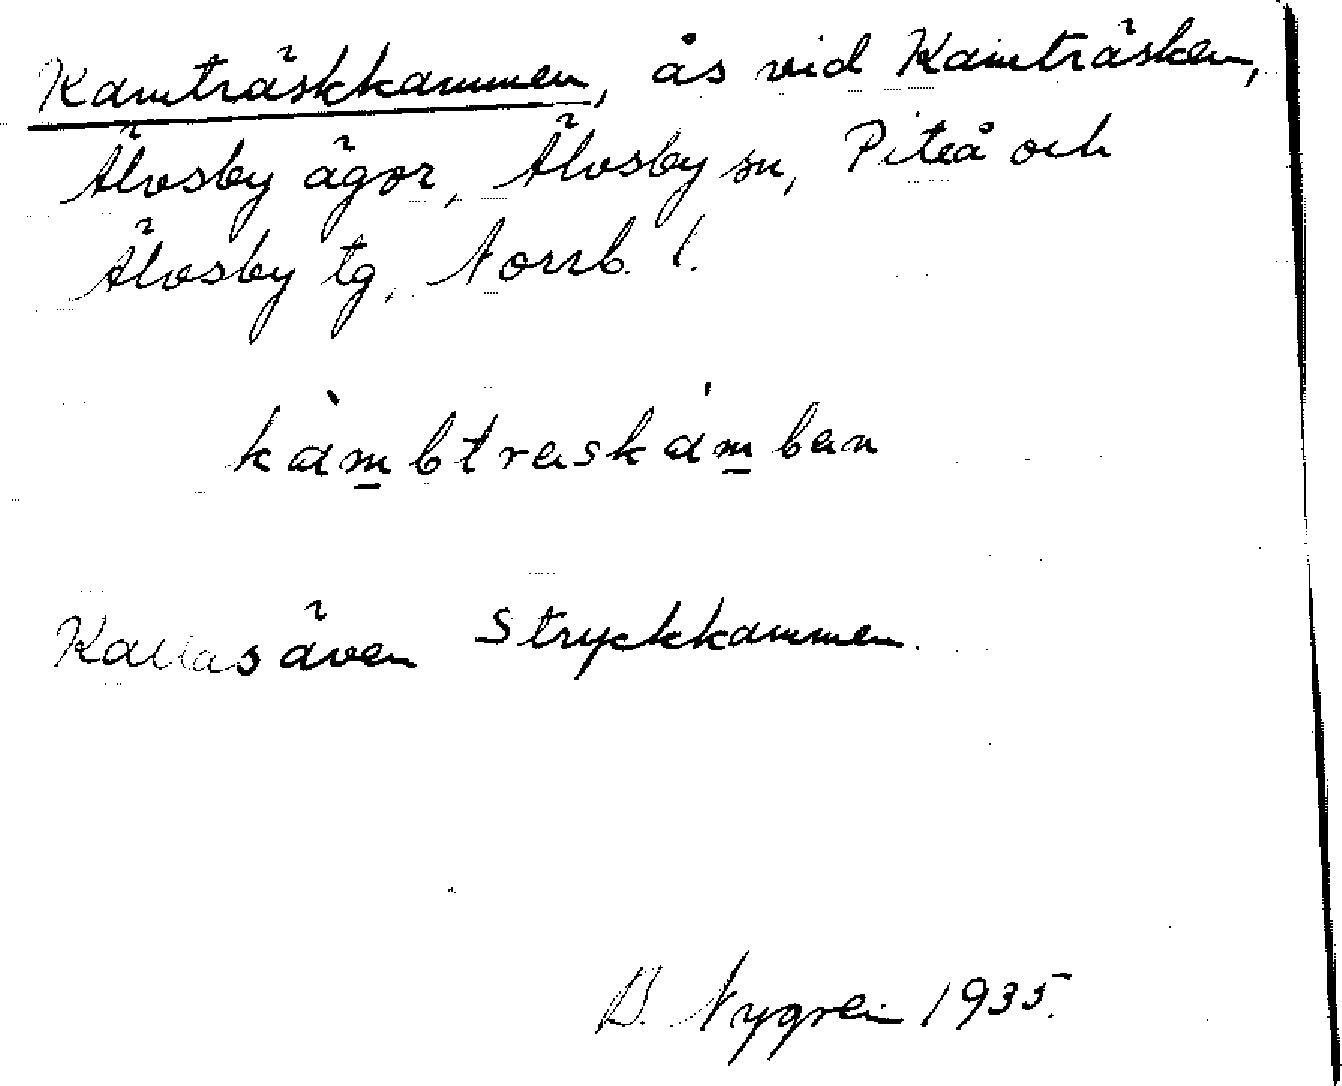 Kamträskkammen, ås vid Kamträsken,
Älvsby ägor, Älvsby sn, Piteå och
Älvsby tg, Norrb. l.
kàmbtraskámban
Kallas även Stryckkammen.
B. Nygren 1935.